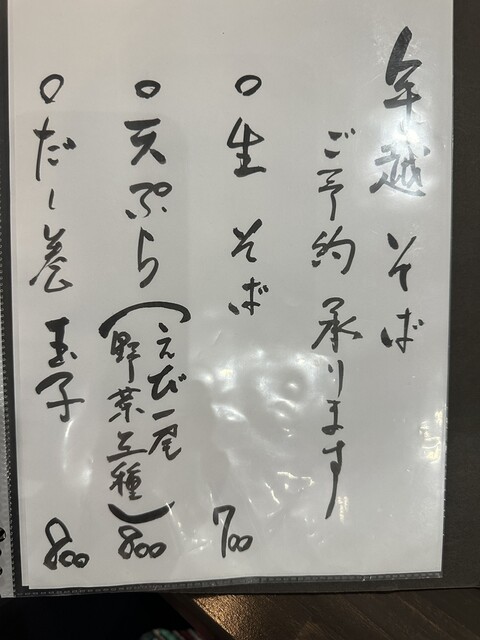 年越そば
ご予約承ります
○生そば 700
○天ぷら(えび一尾 野菜三種) 800
○だし巻玉子 800